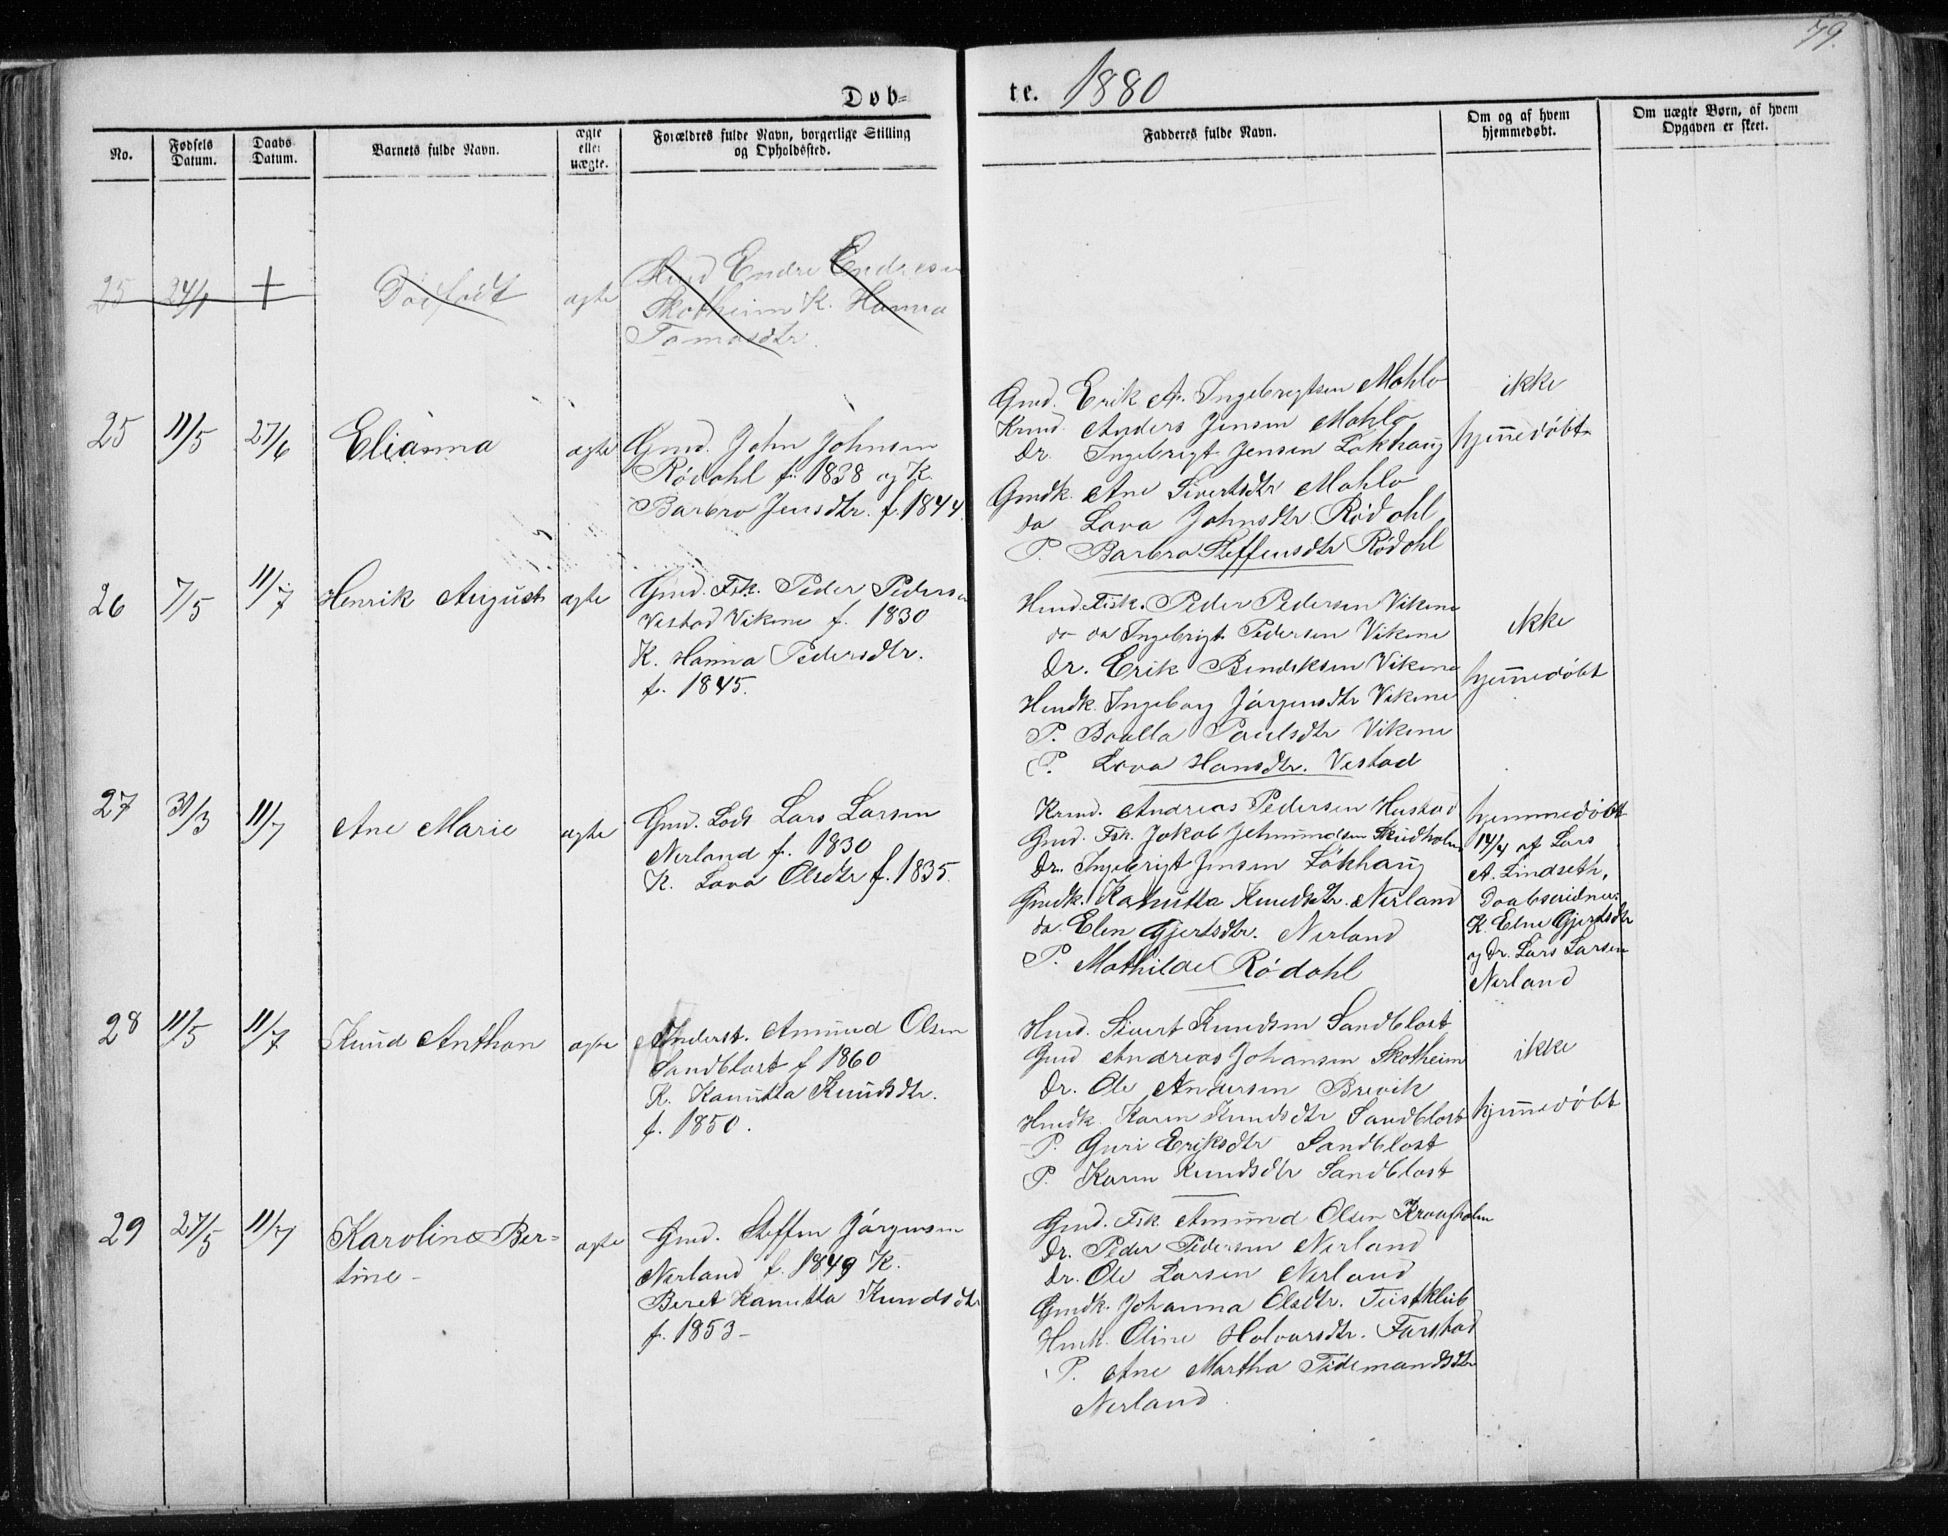 79.
Døb=
te. 1880
No.
Fødsels Datum.
Daabs Datum.
Barnets fulde Navn.
ægte eller uægte.
Forældres fulde Navn, borgerlige Stilling og Opholdssted.
Fadderes fulde Navn.
Om og af hvem hjemmedøbt.
Om uægte Børn, af hvem Opgaven er skeet.
25 24/4 + Dødfødt ægte
Hmd Endre Endresen
Skotheim K. Hanna
Tomasdtr.
25 11/5 27/6 Elianna ægte
Gmd. John Johnsen
Rødahl f. 1838 og K.
Barbro Jensdtr. f. 1844.
Gmd. Erik A. Ingebrigtsen Mahlo
Krmd. Anders Jensen Mahlo
Dr. Ingebrigt Jensen Løkhaug
Gmdk. Ane Sivertsdtr Mahlo
do Lava Johnsdtr Rødahl
P. Barbro Steffensdtr Rødahl
ikke
hjemmedøbt
26 7/5 11/7 Henrik August ægte
Gmd. Fsk. Peder Pedersen
Vestad Vikene f. 1830
K. Hanna Pedersdtr.
f. 1845.
Hmd. Fisk. Peder Pedersen Vikene
do do Ingebrigt Pedersen Vikene
Dr. Erik Bendiksen Vikene
Hmdk. Ingeborg Jørgensdtr Vikene
P. Boalla Paulsdtr Vikene
P. Lava Hansdtr. Vestad
ikke
hjemmedøbt
27 31/3 11/7 Ane Marie ægte
Gmd. Lods Lars Larsen
Nerland f. 1830
K. Lava Olsdtr f. 1835.
Krmd. Andreas Pedersen Hustad
Gmd. Fsk. Jakob Jetmundsen Skudholm
Dr. Ingebrigt Jensen Løkhaug
Gmdk. Kanutta Knudsdtr. Nerland
do. Elen Gjertsdtr. Nerland
P. Mathilde Rødahl
hjemmedøbt
14/4 af Lars
A. Lindseth,
Daabsvidner
K. Elne Gjertsdtr
og Dr. Lars Larsen
Nerland
28 11/5 11/7 Knud Anthon ægte
Inderst. Amund Olsen
Sandblost f 1860
K. Kanutta Knudsdtr.
f. 1850.
Hmd. Sivert Knudsen Sandblost
Gmd Andreas Johansen Skotheim
Dr. Ole Andersen Brevik
Hmdk. Karen Knudsdtr Sandblost
P. Guri Eriksdtr Sandblost
P. Karen Knudsdtr Sandblost
ikke
hjemmedøbt
29 27/5 11/7 Karoline Ber=
tine ægte
Gmd. Steffen Jørgensen
Nerland f. 1849 K.
Beret Kanutta Knudsdtr
f. 1853
Gmd. Fsk Amund Olsen Kraagholm
Dr. Peder Pedersen Nerland
Dr. Ole Larsen Nerland
Gmdk. Johanna Olsdtr. Tustklub
Hmk. Oline Halvarsdtr. Farstad
P. Ane Martha Tidemandsdtr
Nerland.